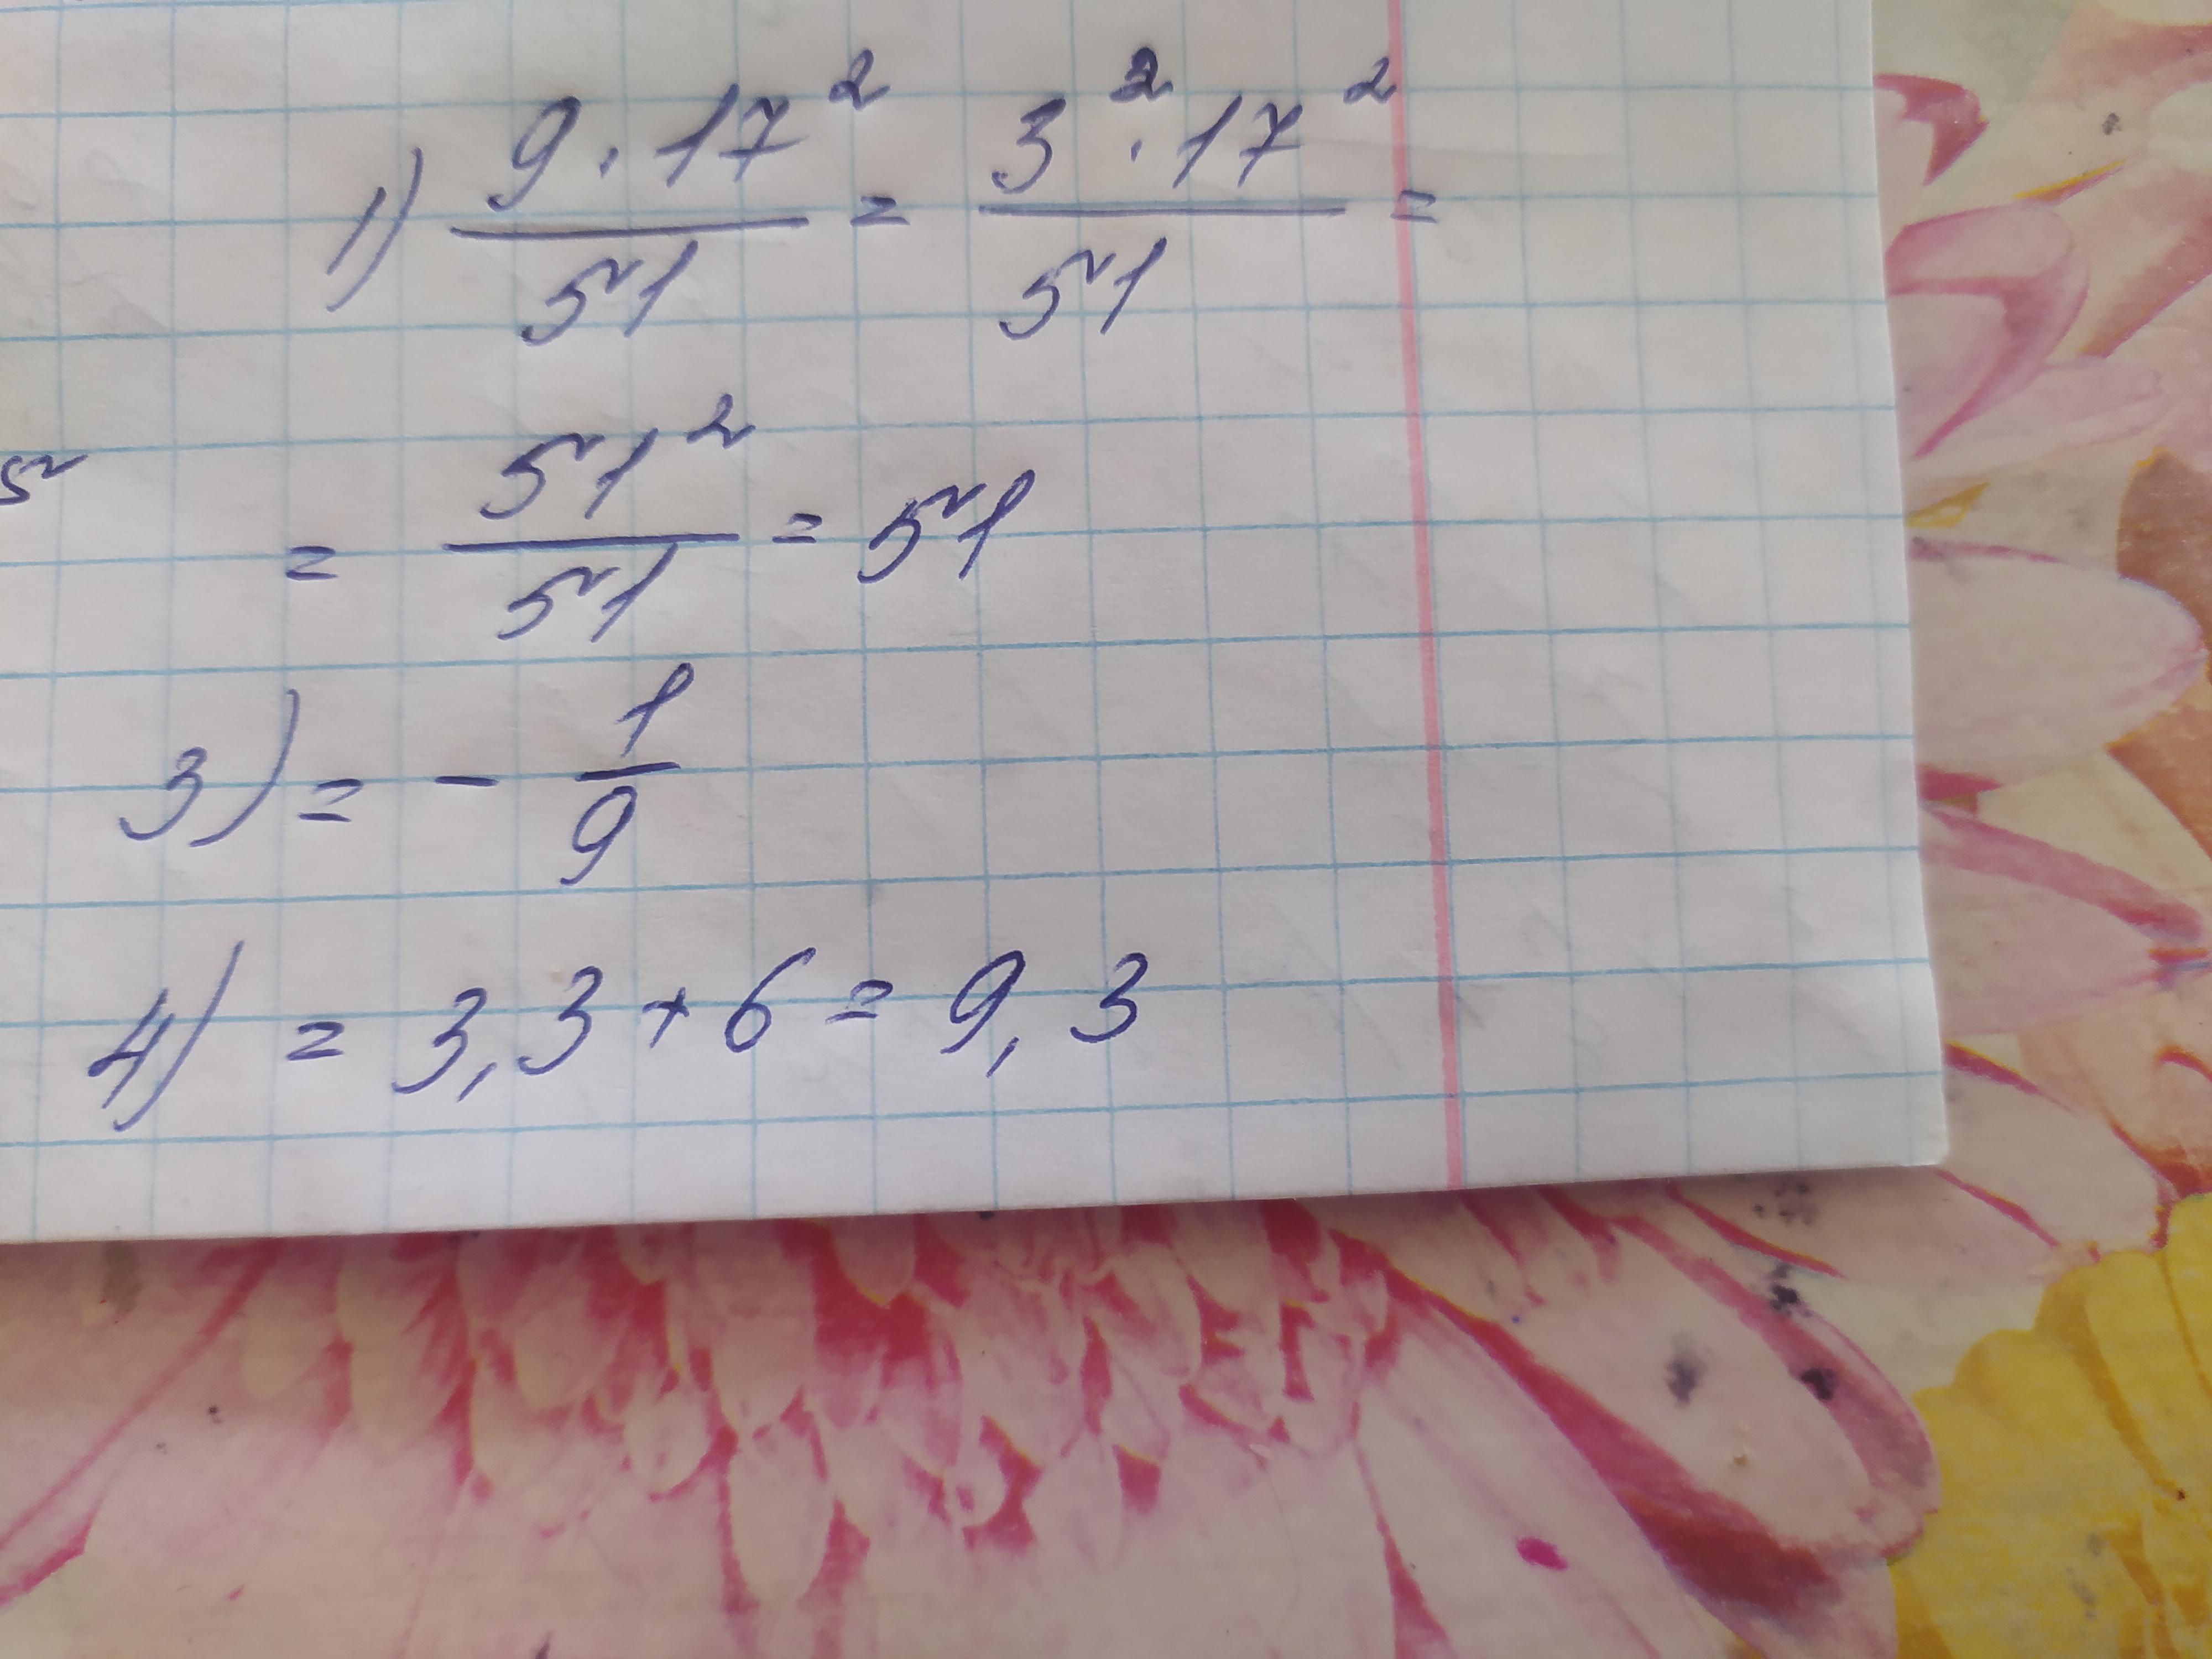 1) 9·17²/51 = 3²·17²/51 =
5
= 51²/51 = 51
3) = - 1/9
4) = 3,3 + 6 = 9,3